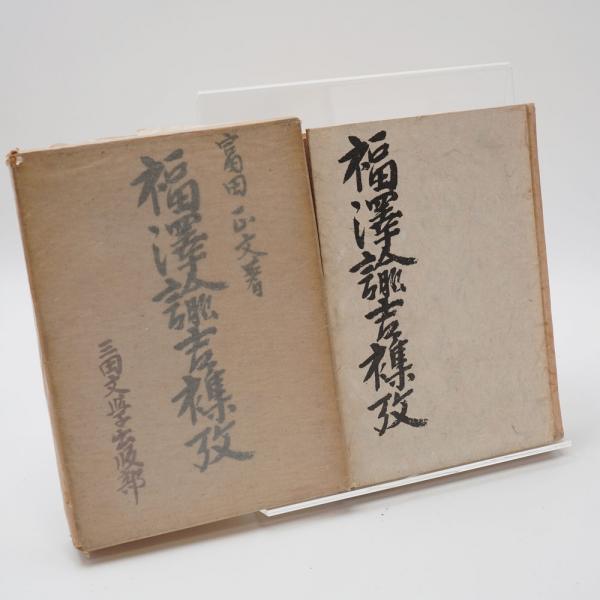 富田正文著
福澤諭吉襍攷
三田文學出版部
福澤諭吉襍攷